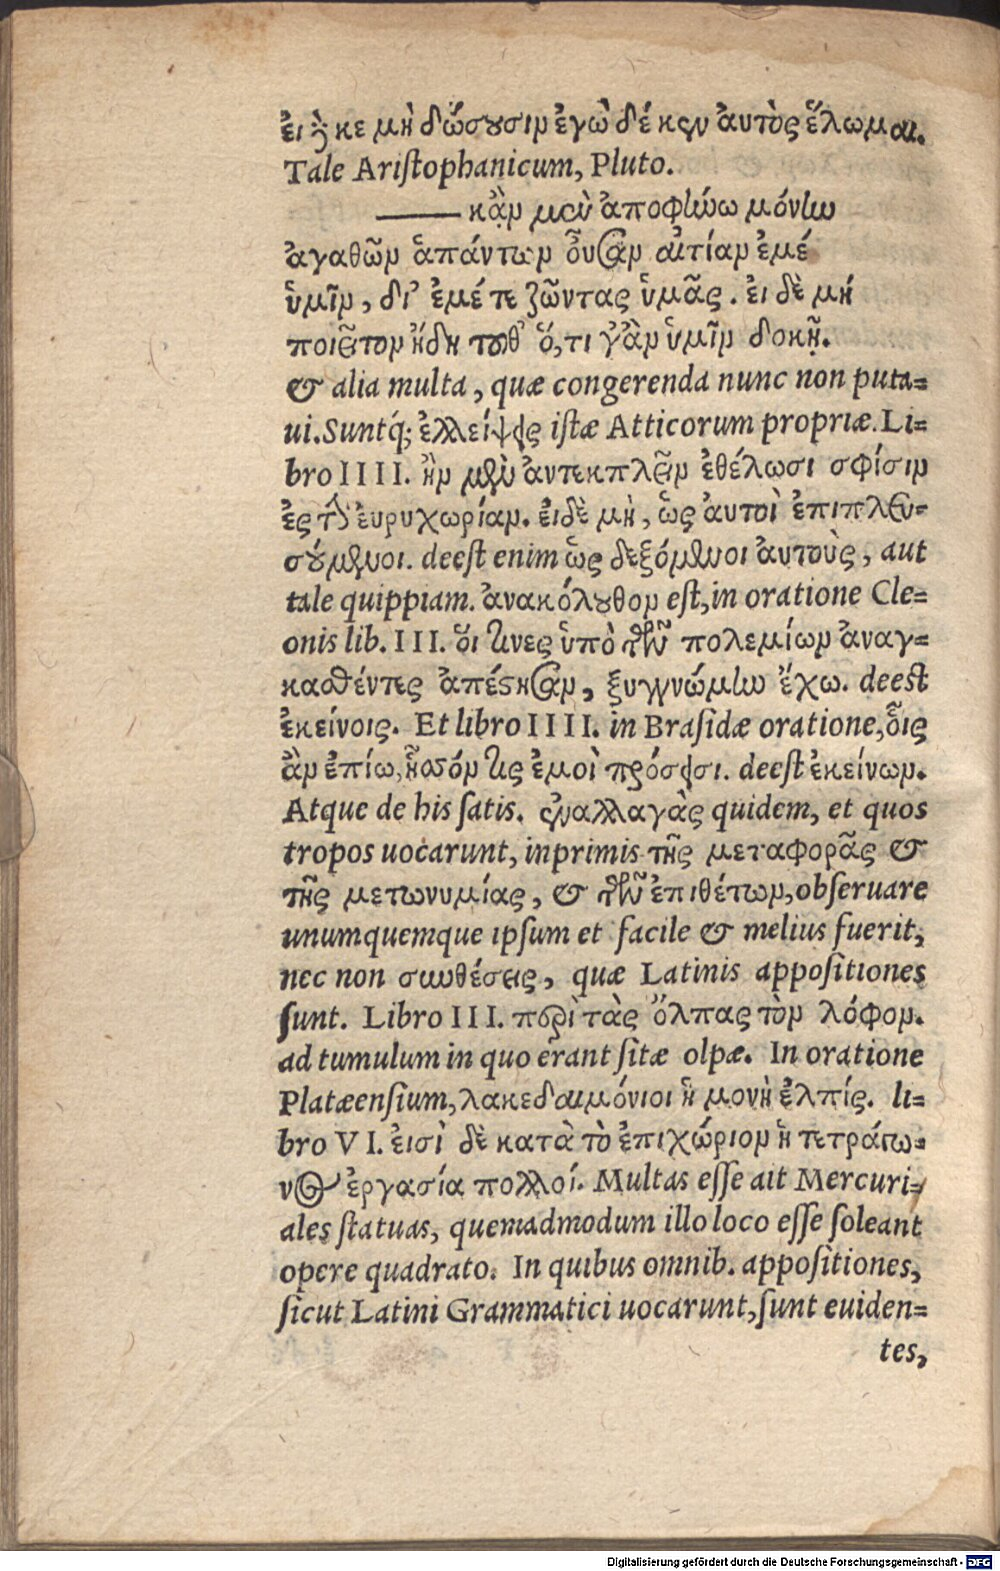 ἐι δέ κε μὴ δώσουσιν ἐγὼ δέ κεν ἀυτὸς ἕλωμαι.
Tale Aristophanicum, Pluto.
—— κἂν μὲν ἀποφήνω μόνην
ἀγαθῶν ἁπάντων οὖσαν αἰτίαν ἐμέ
ὑμῖν, δι᾽ ἐμέ τε ζῶντας ὑμᾶς. ἐι δὲ μή
ποιεῖτον ἤδη τοῦθ᾽ ὅ,τι γ᾽ἂν ὑμῖν δοκῇ.
& alia multa, quæ congerenda nunc non puta=
ui. Suntq́; ἐλλείψεις istæ Atticorum propriæ. Li=
bro IIII. ἢν μὲν ἀντεκπλεῖν ἐθέλωσι σφίσιν
ἐς τὴν ἐυρυχωρίαν. ἐιδὲ μὴ, ὡς ἀυτοὶ ἐπιπλευ=
σούμενοι. deest enim ὡς δεξόμενοι ἀυτοὺς, aut
tale quippiam. ἀνακόλουθον est, in oratione Cle=
onis lib. III. ὅι τινες ὑπὸ τῶν πολεμίων ἀναγ=
κασθέντες ἀπέστησαν, ξυγγνώμην ἔχω. deest
ἐκείνοις. Et libro IIII. in Brasidæ oratione, οἷς
ἂν ἐπίω, ἧσσόν τις ἐμοὶ πρόσεισι. deest ἐκείνων.
Atque de his satis. ἐναλλαγὰς quidem, et quos
tropos uocarunt, inprimis τῆς μεταφορᾶς &
τῆς μετωνυμίας, & τῶν ἐπιθέτων, obseruare
unumquemque ipsum et facile & melius fuerit,
nec non συνθέσεις, quæ Latinis appositiones
sunt. Libro III. περὶ τὰς ὄλπας τὸν λόφον.
ad tumulum in quo erant sitæ olpæ. In oratione
Platæensium, λακεδαιμόνιοι ἡ μονὴ ἐλπίς. li=
bro VI. ἐισὶ δὲ κατὰ τὸ ἐπιχώριον ἡ τετράγω=
νος ἐργασία πολλοί. Multas esse ait Mercuri=
ales statuas, quemadmodum illo loco esse soleant
opere quadrato. In quibus omnib. appositiones,
sicut Latini Grammatici uocarunt, sunt euiden=
tes,
Digitalisierung gefördert durch die Deutsche Forschungsgemeinschaft - DFG